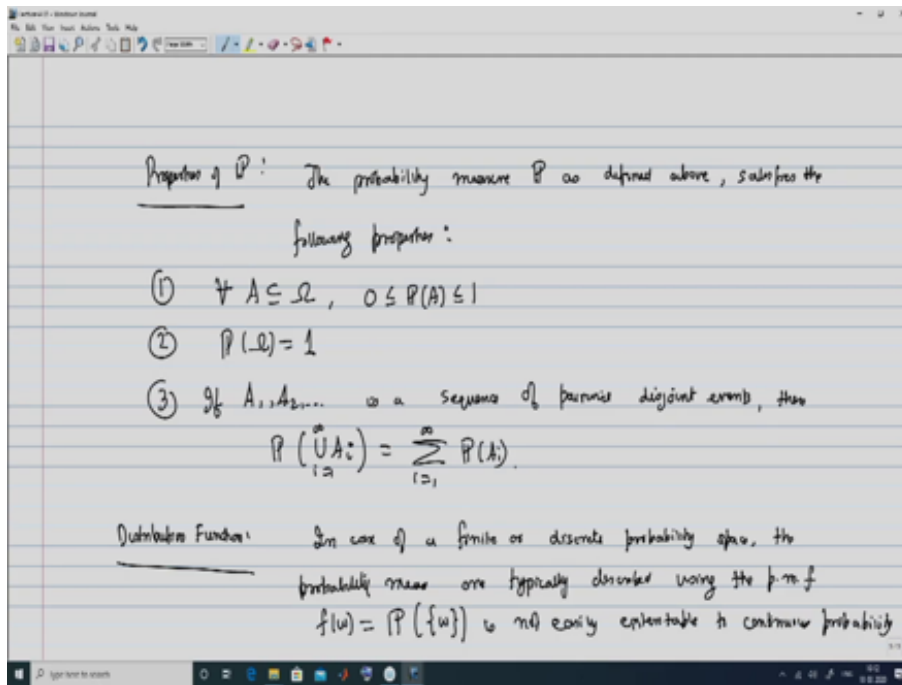 File Edit View Insert Actions Tools Help
Properties of ℙ : The probability measure ℙ as defined above, satisfies the
following properties :
① ∀ A ⊆ Ω , 0 ≤ ℙ(A) ≤ 1
② ℙ(Ω) = 1
③ If A₁, A₂, ... is a sequence of pairwise disjoint events, then
ℙ (∞∪i=1 Ai) = ∞∑i=1 ℙ(Ai).
Distribution Function: In case of a finite or discrete probability space, the
probability meas are typically described using the p.m.f
f(ω) = ℙ({ω}) is not easily extentable to continuous probability
Type here to search